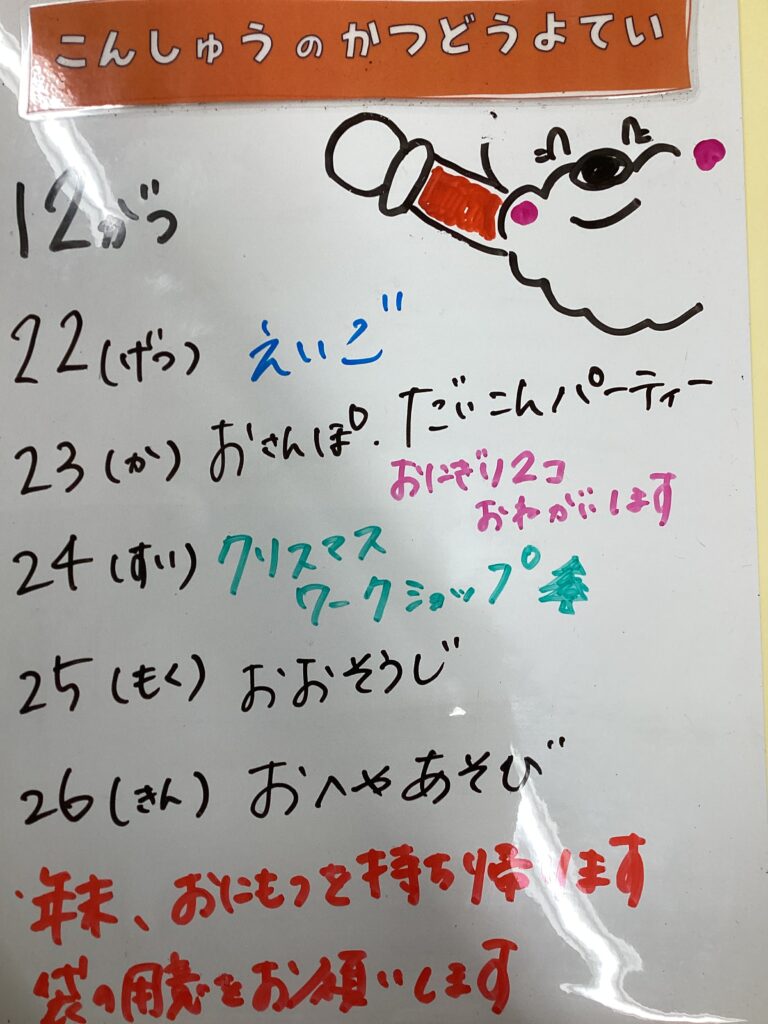 こんしゅうのかつどうよてい
12がつ
22(げつ) えいご
23(か) おさんぽ.だいこんパーティー
おにぎり2コ
おねがいします
24(すい) クリスマス
ワークショップ
25(もく) おおそうじ
26(きん) おへやあそび
年末、おにもつを持ち帰ります
袋の用意をお願いします